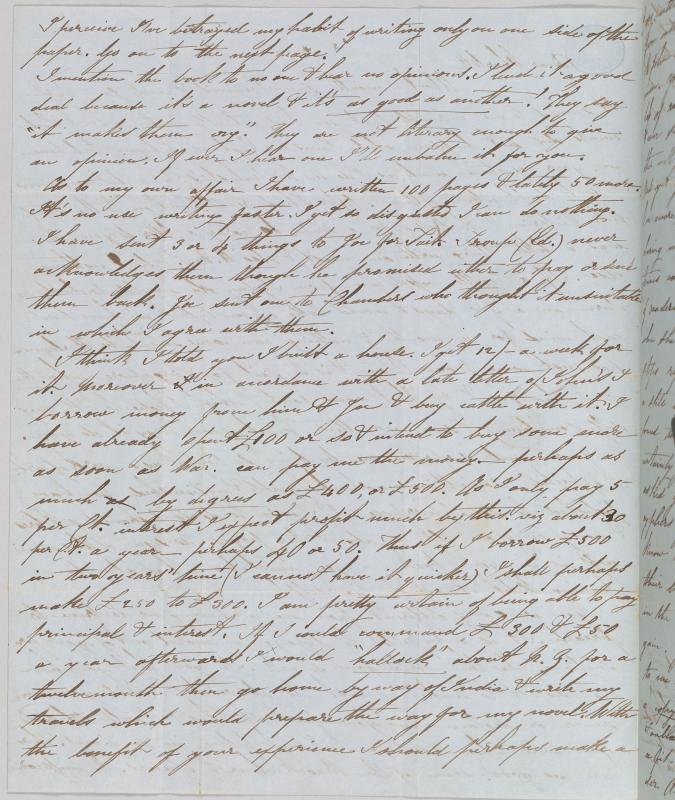 I perceive I've betrayed my habit of writing only on one side of the
paper. Go on to the next page.
I mention the book to no one & hear no opinions. I lend it a good
deal because it's a novel & it's as good as another! They say
"it makes them cry." They are not literary enough to give
an opinion. If ever I hear one I'll embalm it for you.
As to my own affair I have written 100 pages & lately 50 more.
It's no use writing faster. I get so disgusted I can do nothing.
I have sent 3 or 4 things to Joe for Tait. Troup (Ed.) never
acknowledges them though he promised either to pay or send
them back. Joe sent one to Chambers who thought it unsuitable
in which I agree with them.
I think I told you I built a house. I get 12/- a week for
it. Moreover in accordance with a late letter of John's I
borrow money from him & Joe & buy cattle with it. I
have already spent £100 or so & intend to buy some more
as soon as War. can pay me the money. perhaps as
much as by degrees as £400, or £500. As I only pay 5
per Ct. interest I expect profit much by this. viz about 30
per Ct. a year perhaps 40 or 50. Thus if I borrow £500
in two years' time (I cannot have it quicker) I shall perhaps
make £250 to £300. I am pretty certain of being able to pay
principal & interest. If I could command £300 & £50
a year afterwards I would "hallock" about N. Z. for a
twelvemonth then go home by way of India & write my
travels which would prepare the way for my novel. With
the benefit of your experience I should perhaps make a